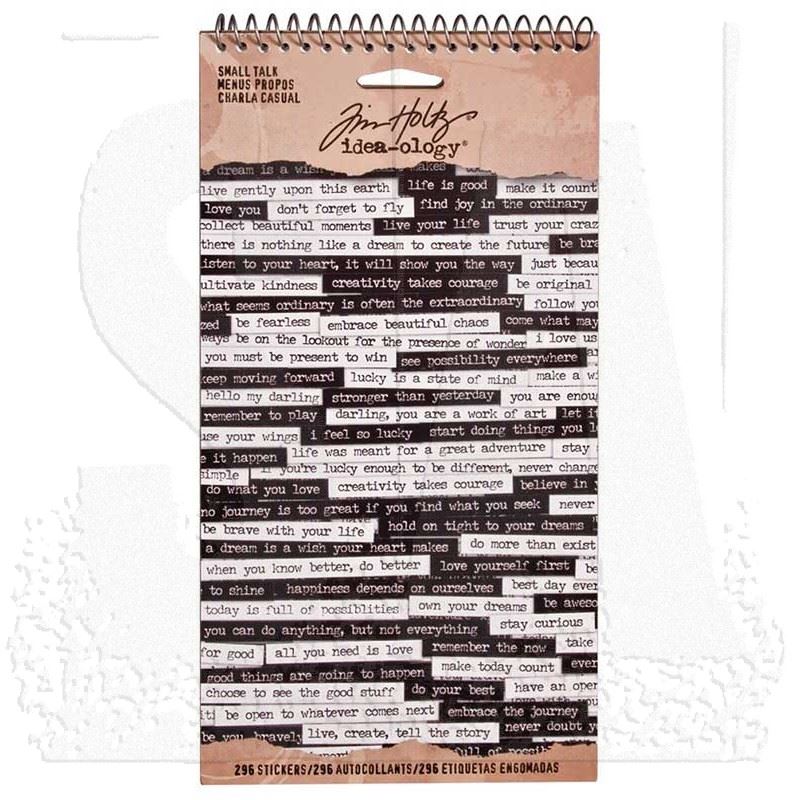 SMALL TALK
MENUS PROPOS
CHARLA CASUAL
Tim Holtz
idea-ology®
a dream is a wish makes
live gently upon this earth life is good make it count
love you don't forget to fly find joy in the ordinary
collect beautiful moments live your life trust your craz
there is nothing like a dream to create the future be bra
isten to your heart, it will show you the way just becau
ultivate kindness creativity takes courage be original
what seems ordinary is often the extraordinary follow yo
zed be fearless embrace beautiful chaos come what may
ways be on the lookout for the presence of wonder i love us
you must be present to win see possibility everywhere
keep moving forward lucky is a state of mind make a wi
hello my darling stronger than yesterday you are enoug
remember to play darling, you are a work of art let it
use your wings i feel so lucky start doing things you l
e it happen life was meant for a great adventure stay
simple if you're lucky enough to be different, never change
do what you love creativity takes courage believe in y
no journey is too great if you find what you seek never
be brave with your life hold on tight to your dreams
a dream is a wish your heart makes do more than exist
when you know better, do better love yourself first be
to shine happiness depends on ourselves best day ever
today is full of possiblities own your dreams be aweso
you can do anything, but not everything stay curious
for good all you need is love remember the now take
good things are going to happen make today count ever
choose to see the good stuff do your best have an open
it be open to whatever comes next embrace the journey
be you bravely live, create, tell the story never doubt y
full of possib
296 STICKERS/296 AUTOCOLLANTS/296 ETIQUETAS ENGOMADAS